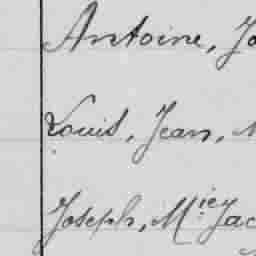 Antoine, Jo
Louis, Jean,
Joseph, Miey Jac